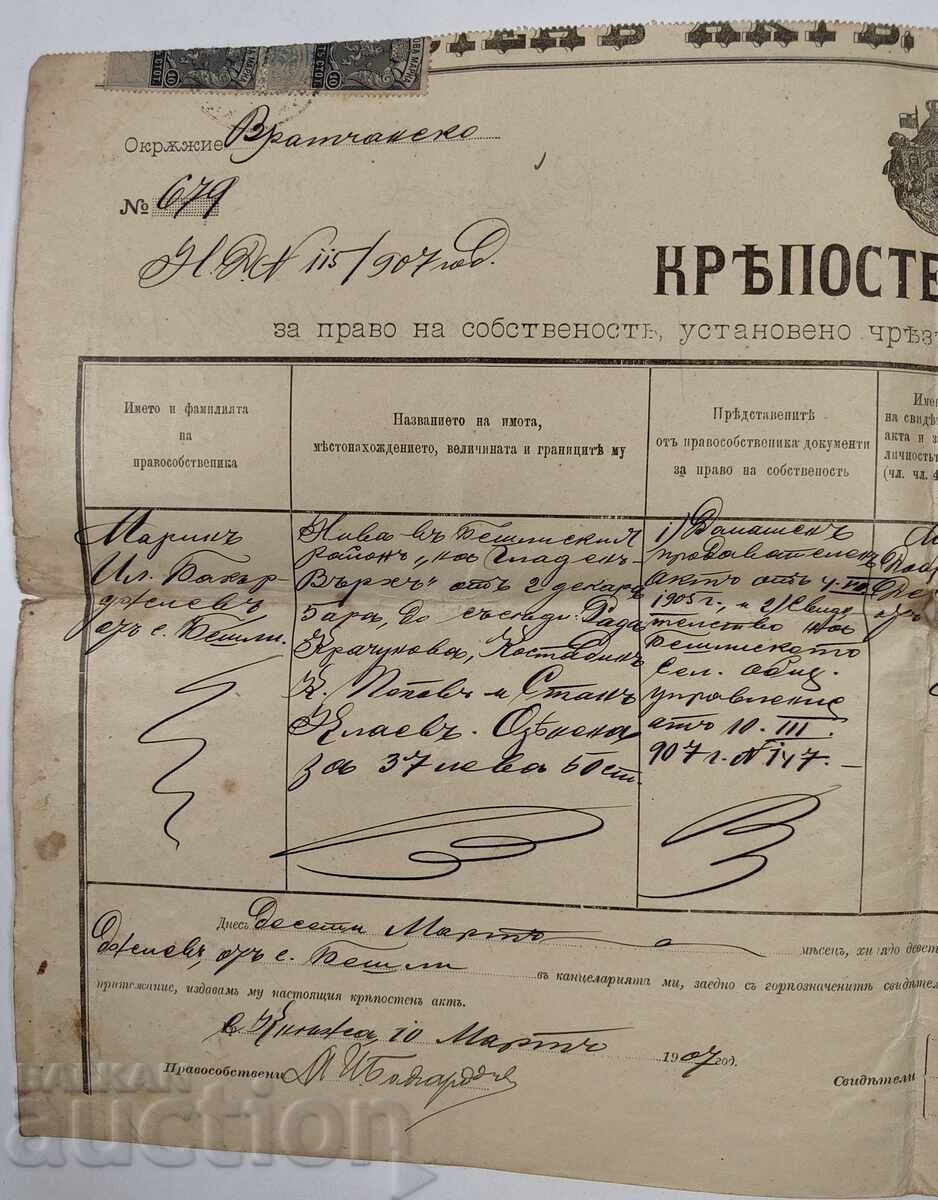 ТЕНЪ АКТЪ.
ОВА МАРКА
10 СТОТ. 10
Окрѫжие Вратчанско
№ 679
Н. Д. № 115/907 год.
КРѢПОСТЕ
за право на собственость, установено чрѣзъ
Името и фамилията
на
правособственика
Названието на имота,
мѣстонахождението, величината и границитѣ му
Прѣдставенитѣ
отъ правособственика документи
за право на собственость
Име
на свидѣ
акта и з
личностьт
(чл. чл. 4
Маринъ
Ил. Бакър-
джиевъ
отъ с. Бешли.
Нива въ Бешлийский
районъ „на Гладенъ
Върхъ" отъ 2 декара
5 ара, до съсѣди: Рада
Крачунова, Костадинъ
К. Поповъ и Станъ
Клаевъ. Оцѣнена
за 37 лева 50 ст.
1) Домашенъ
продавателенъ
актъ отъ
1905 г., и 2) Свидѣ
телство на
Бешлийското
Сел. общ.
управление
отъ 10. III.
907 г. № 147.
Днесъ Десети Мартъ мѣсецъ, хилядо девет
джиевъ, отъ с. Бешли въ канцеларията ми, заедно съ горпозначенитѣ свидѣтел
притежание, издавамъ му настоящия крѣпостенъ актъ.
с. Кнежа, 10 Мартъ 1907 год.
Правособствени
Свидѣтели
БАЛКАН
АУКЦИОН